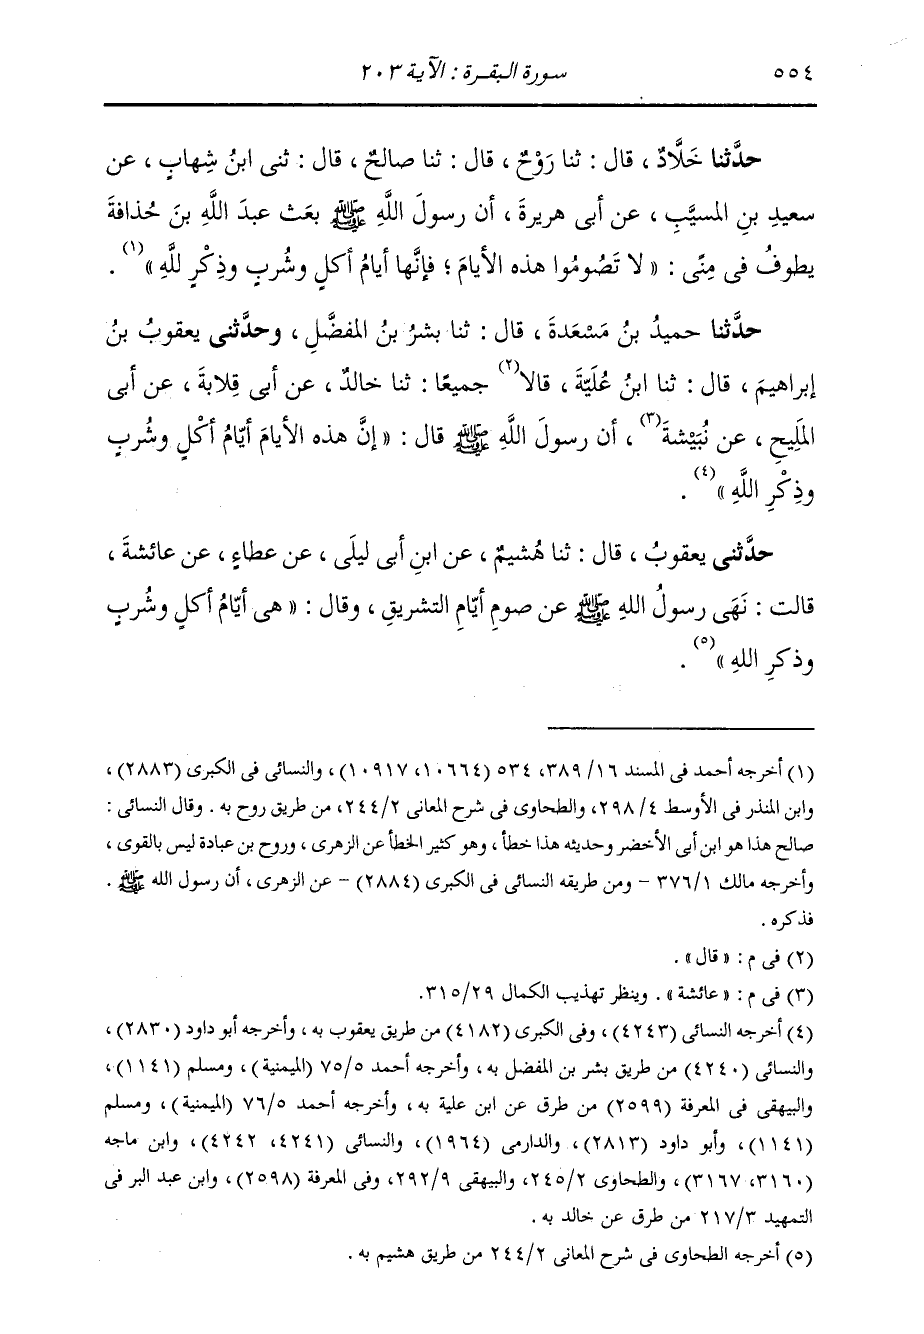 ٥٥٤
سورة البقرة : الآية ٢٠٣
حدَّثنا خَلَّادٌ ، قال : ثنا رَوْحٌ ، قال : ثنا صالحٌ ، قال : ثنى ابنُ شِهابٍ ، عن
سعيدِ بنِ المسيَّبِ ، عن أبى هريرةَ ، أن رسولَ اللَّهِ ﷺ بعَث عبدَ اللَّهِ بنَ حُذافةَ
يطوفُ فى مِنًى : « لا تَصُومُوا هذه الأيامَ ؛ فإنَّها أيامُ أكلٍ وشُربٍ وذِكْرٍ للَّهِ »(١) .
حدَّثنا حميدُ بنُ مَسْعَدةَ ، قال : ثنا بشرُ بنُ المفضَّلِ ، وحدَّثنى يعقوبُ بنُ
إبراهيمَ ، قال : ثنا ابنُ عُلَيّةَ ، قالا(٢) جميعًا : ثنا خالدٌ ، عن أبى قِلابةَ ، عن أبى
المَلِيحِ ، عن نُبَيْشةَ(٣) ، أن رسولَ اللَّهِ ﷺ قال : « إنَّ هذه الأيامَ أيّامُ أكْلٍ وشُربٍ
وذِكْرِ اللَّهِ »(٤) .
حدَّثنى يعقوبُ ، قال : ثنا هُشيمٌ ، عن ابنِ أبى ليلَى ، عن عطاءٍ ، عن عائشةَ ،
قالت : نَهَى رسولُ اللهِ ﷺ عن صومِ أيّامِ التشريقِ ، وقال : « هى أيّامُ أكلٍ وشُربٍ
وذكرِ اللهِ »(٥) .
(١) أخرجه أحمد فى المسند ١٦/ ٣٨٩، ٥٣٤ (١٠٦٦٤، ١٠٩١٧) ، والنسائى فى الكبرى (٢٨٨٣) ،
وابن المنذر فى الأوسط ٤/ ٢٩٨، والطحاوى فى شرح المعانى ٢/ ٢٤٤، من طريق روح به . وقال النسائى :
صالح هذا هو ابن أبى الأخضر وحديثه هذا خطأ ، وهو كثير الخطأ عن الزهرى ، وروح بن عبادة ليس بالقوى ،
وأخرجه مالك ١/ ٣٧٦ - ومن طريقه النسائى فى الكبرى (٢٨٨٤) - عن الزهرى ، أن رسول الله ﷺ .
فذكره .
(٢) فى م : « قال » .
(٣) فى م : « عائشة » . وينظر تهذيب الكمال ٢٩/ ٣١٥.
(٤) أخرجه النسائى (٤٢٤٣) ، وفى الكبرى (٤١٨٢) من طريق يعقوب به ، وأخرجه أبو داود (٢٨٣٠) ،
والنسائى (٤٢٤٠) من طريق بشر بن المفضل به ، وأخرجه أحمد ٥/ ٧٥ (الميمنية) ، ومسلم (١١٤١) ،
والبيهقى فى المعرفة (٢٥٩٩) من طرق عن ابن علية به ، وأخرجه أحمد ٥/ ٧٦ (الميمنية) ، ومسلم
(١١٤١) ، وأبو داود (٢٨١٣) ، والدارمى (١٩٦٤) ، والنسائى (٤٢٤١، ٤٢٤٢) ، وابن ماجه
(٣١٦٠، ٣١٦٧) ، والطحاوى ٢/ ٢٤٥، والبيهقى ٩/ ٢٩٢، وفى المعرفة (٢٥٩٨) ، وابن عبد البر فى
التمهيد ٣/ ٢١٧ من طرق عن خالد به .
(٥) أخرجه الطحاوى فى شرح المعانى ٢/ ٢٤٤ من طريق هشيم به .